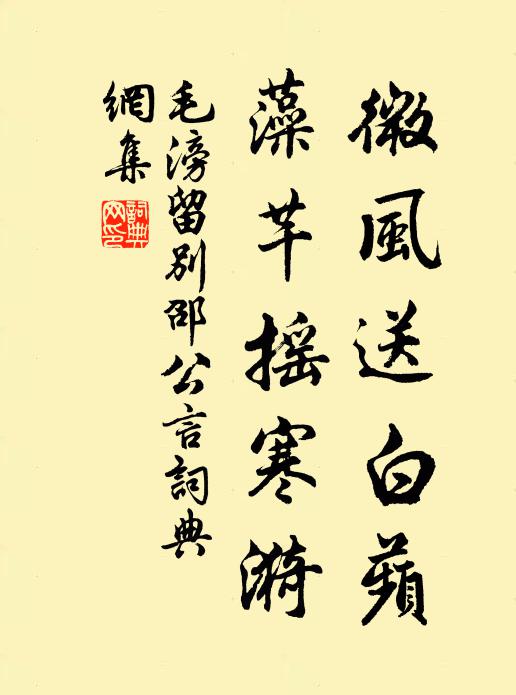 微風送白蘋
藻芊摇寒漪
毛滂留別邵公言詞典
網集
詞典網印